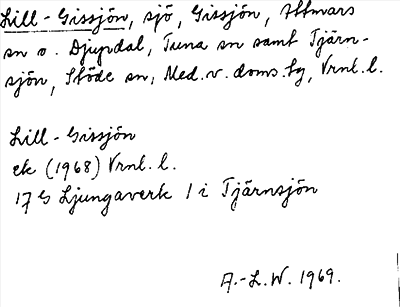 Lill-Gissjön, sjö, Gissjön, Attmars
sn o. Djupdal, Tuna sn samt Tjärn-
sjön, Stöde sn, Med.v.doms.sg, Vrnl.l.
Lill-Gissjön
ek (1968) Vrnl.l.
17 G Ljungaverk 1 i Tjärnsjön
A.-L.W. 1969.